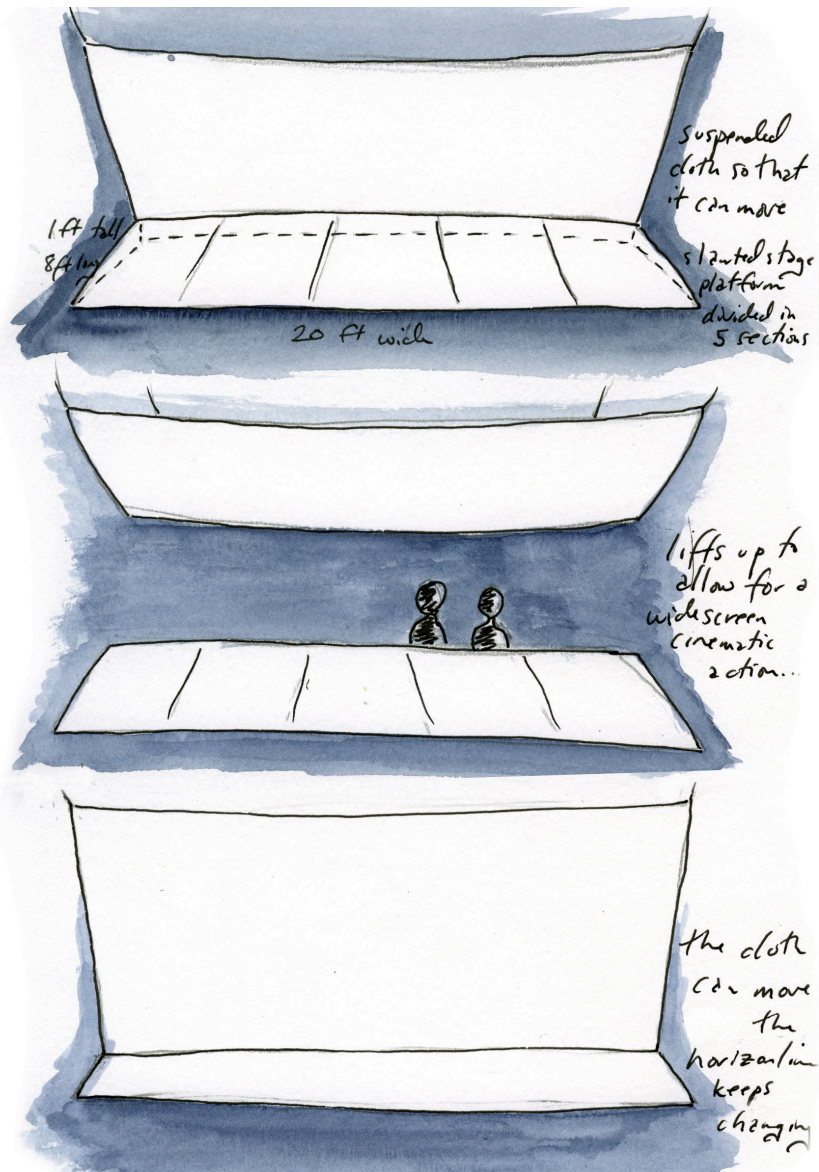 suspended
cloth so that
it can move
1 ft tall
8 ft long
slanted stage
platform
divided in
5 sections
20 ft wide
lifts up to
allow for a
widescreen
cinematic
action...
the cloth
can move
the
horizonline
keeps
changing